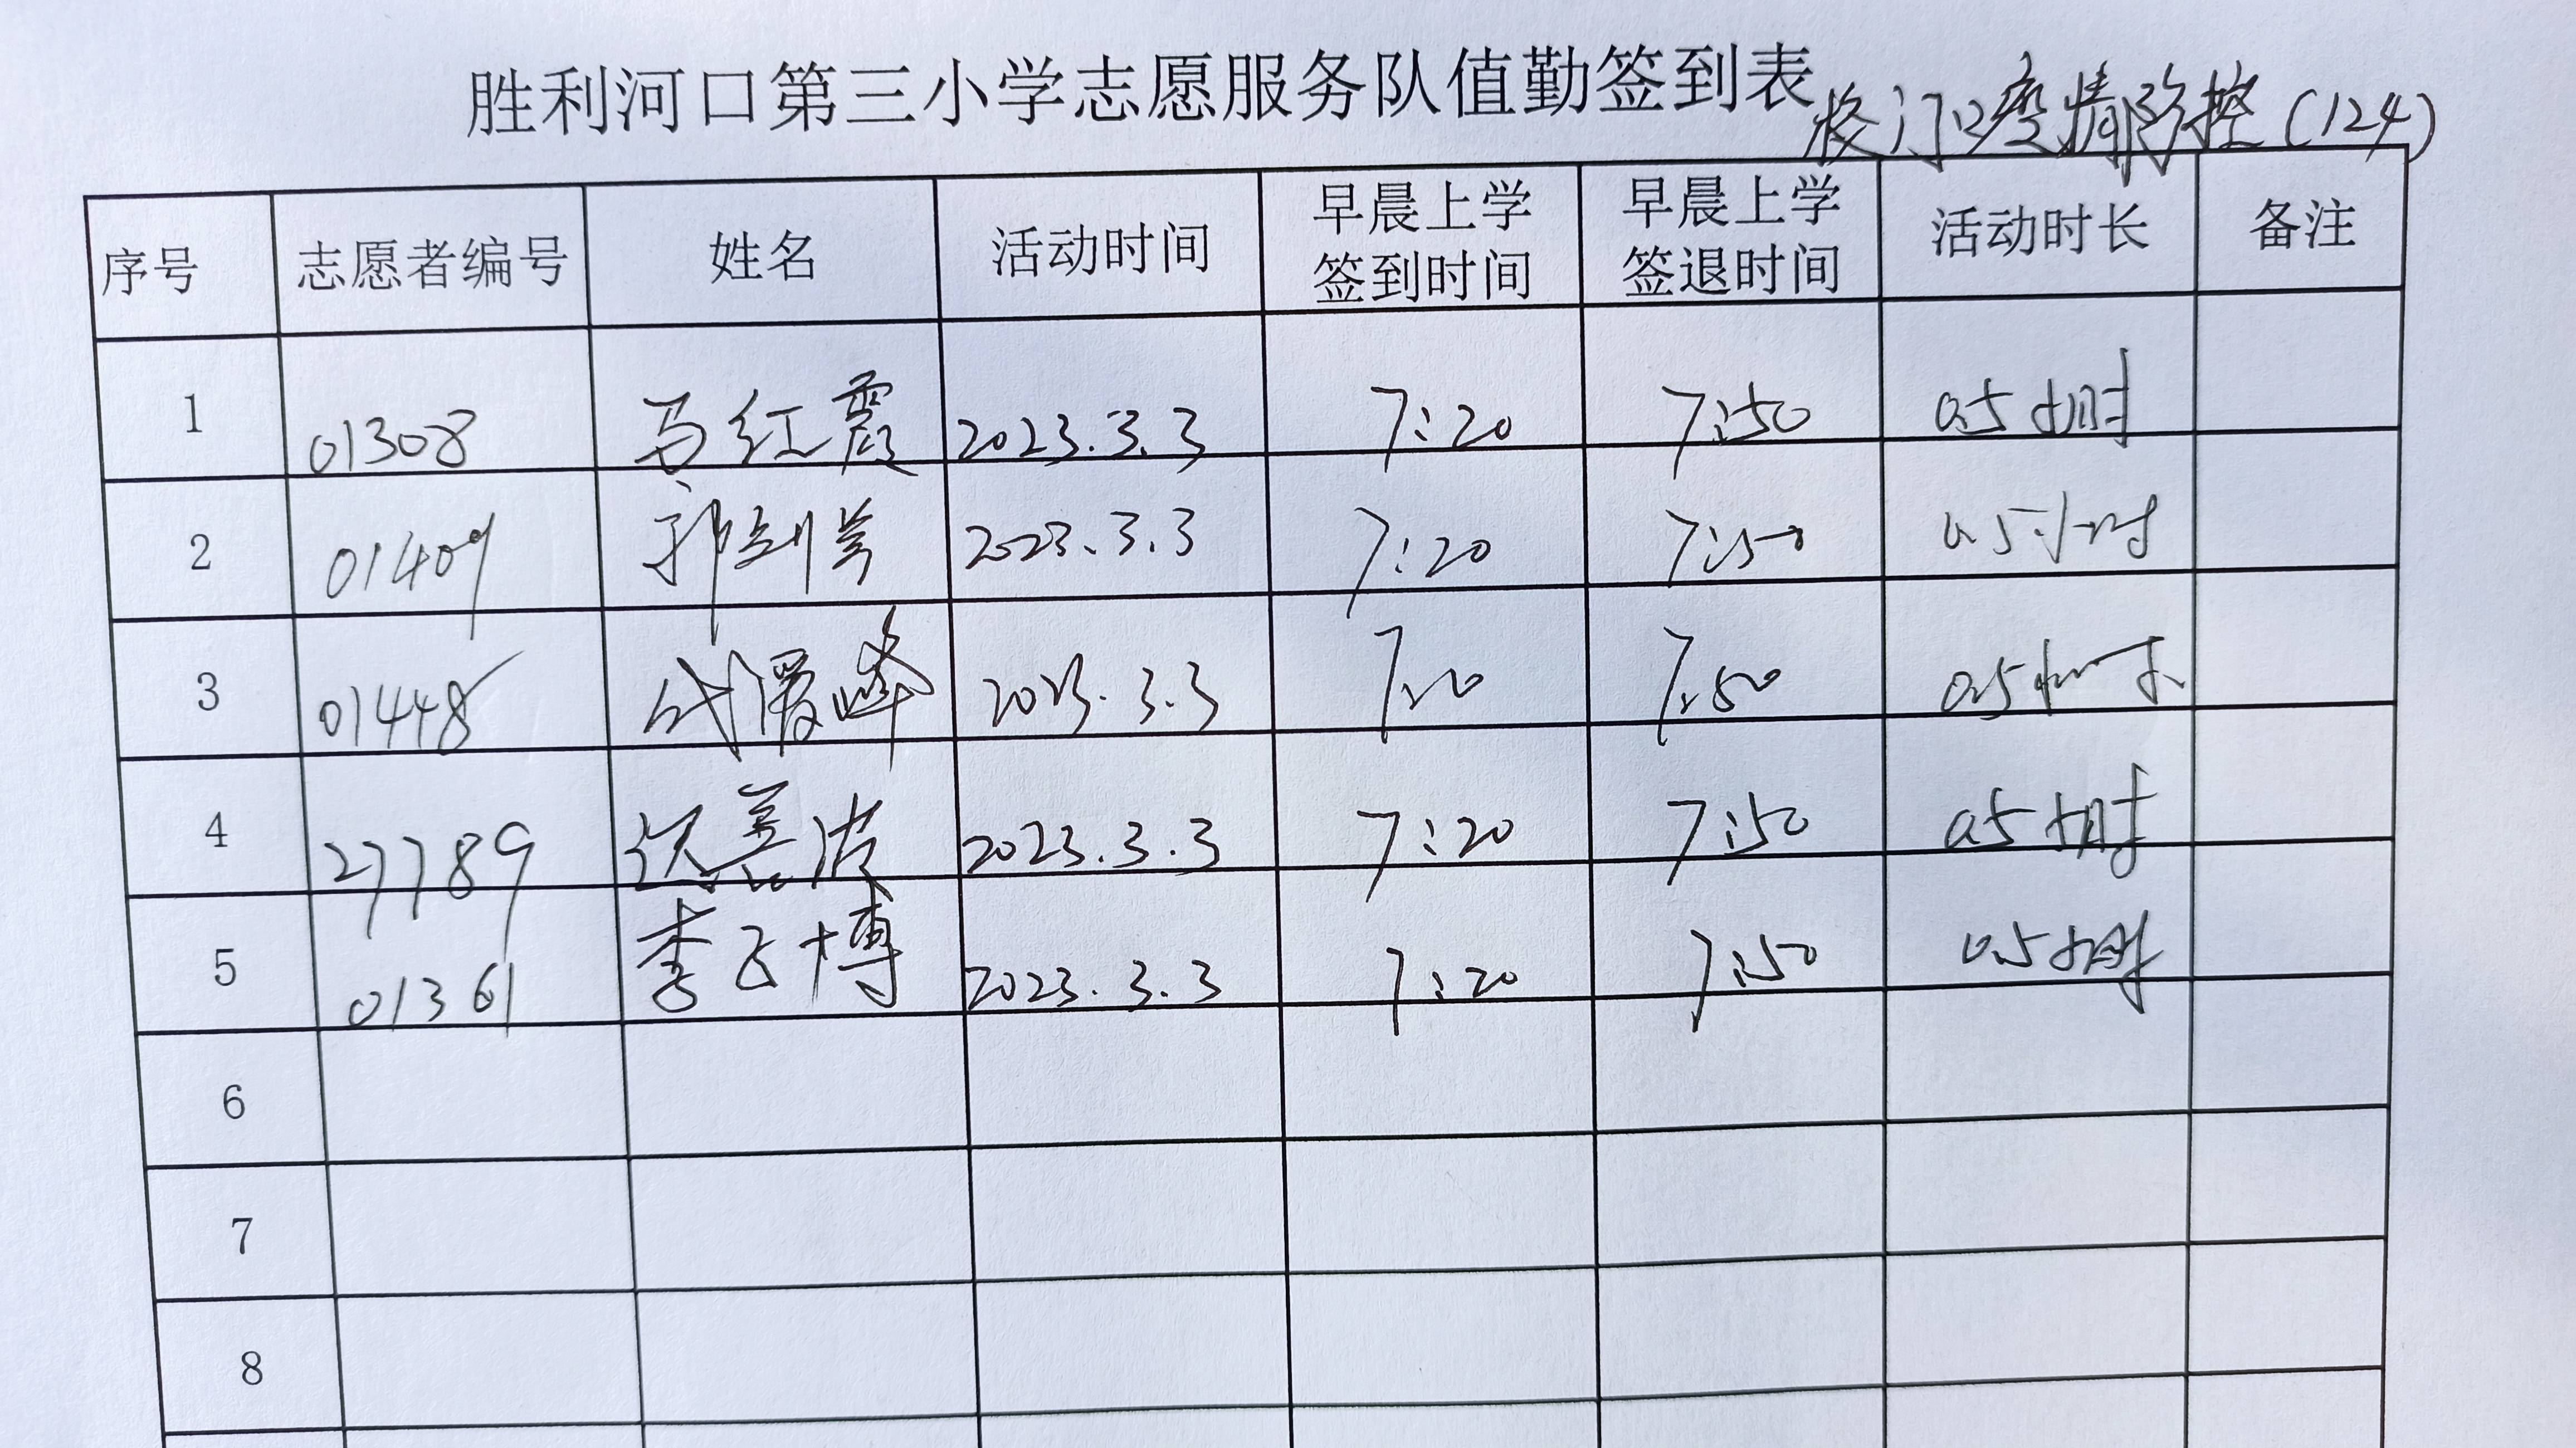 胜利河口第三小学志愿服务队值勤签到表 校门口疫情防控(124)
序号 志愿者编号 姓名 活动时间 早晨上学签到时间 早晨上学签退时间 活动时长 备注
1 01308 马红霞 2023.3.3 7:20 7:50 0.5小时
2 01409 郭剑 2023.3.3 7:20 7:50 0.5小时
3 01448 代爱峰 2023.3.3 7:20 7:50 0.5小时
4 27789 洪善波 2023.3.3 7:20 7:50 0.5小时
5 01361 李玉博 2023.3.3 7:20 7:50 0.5小时
6
7
8